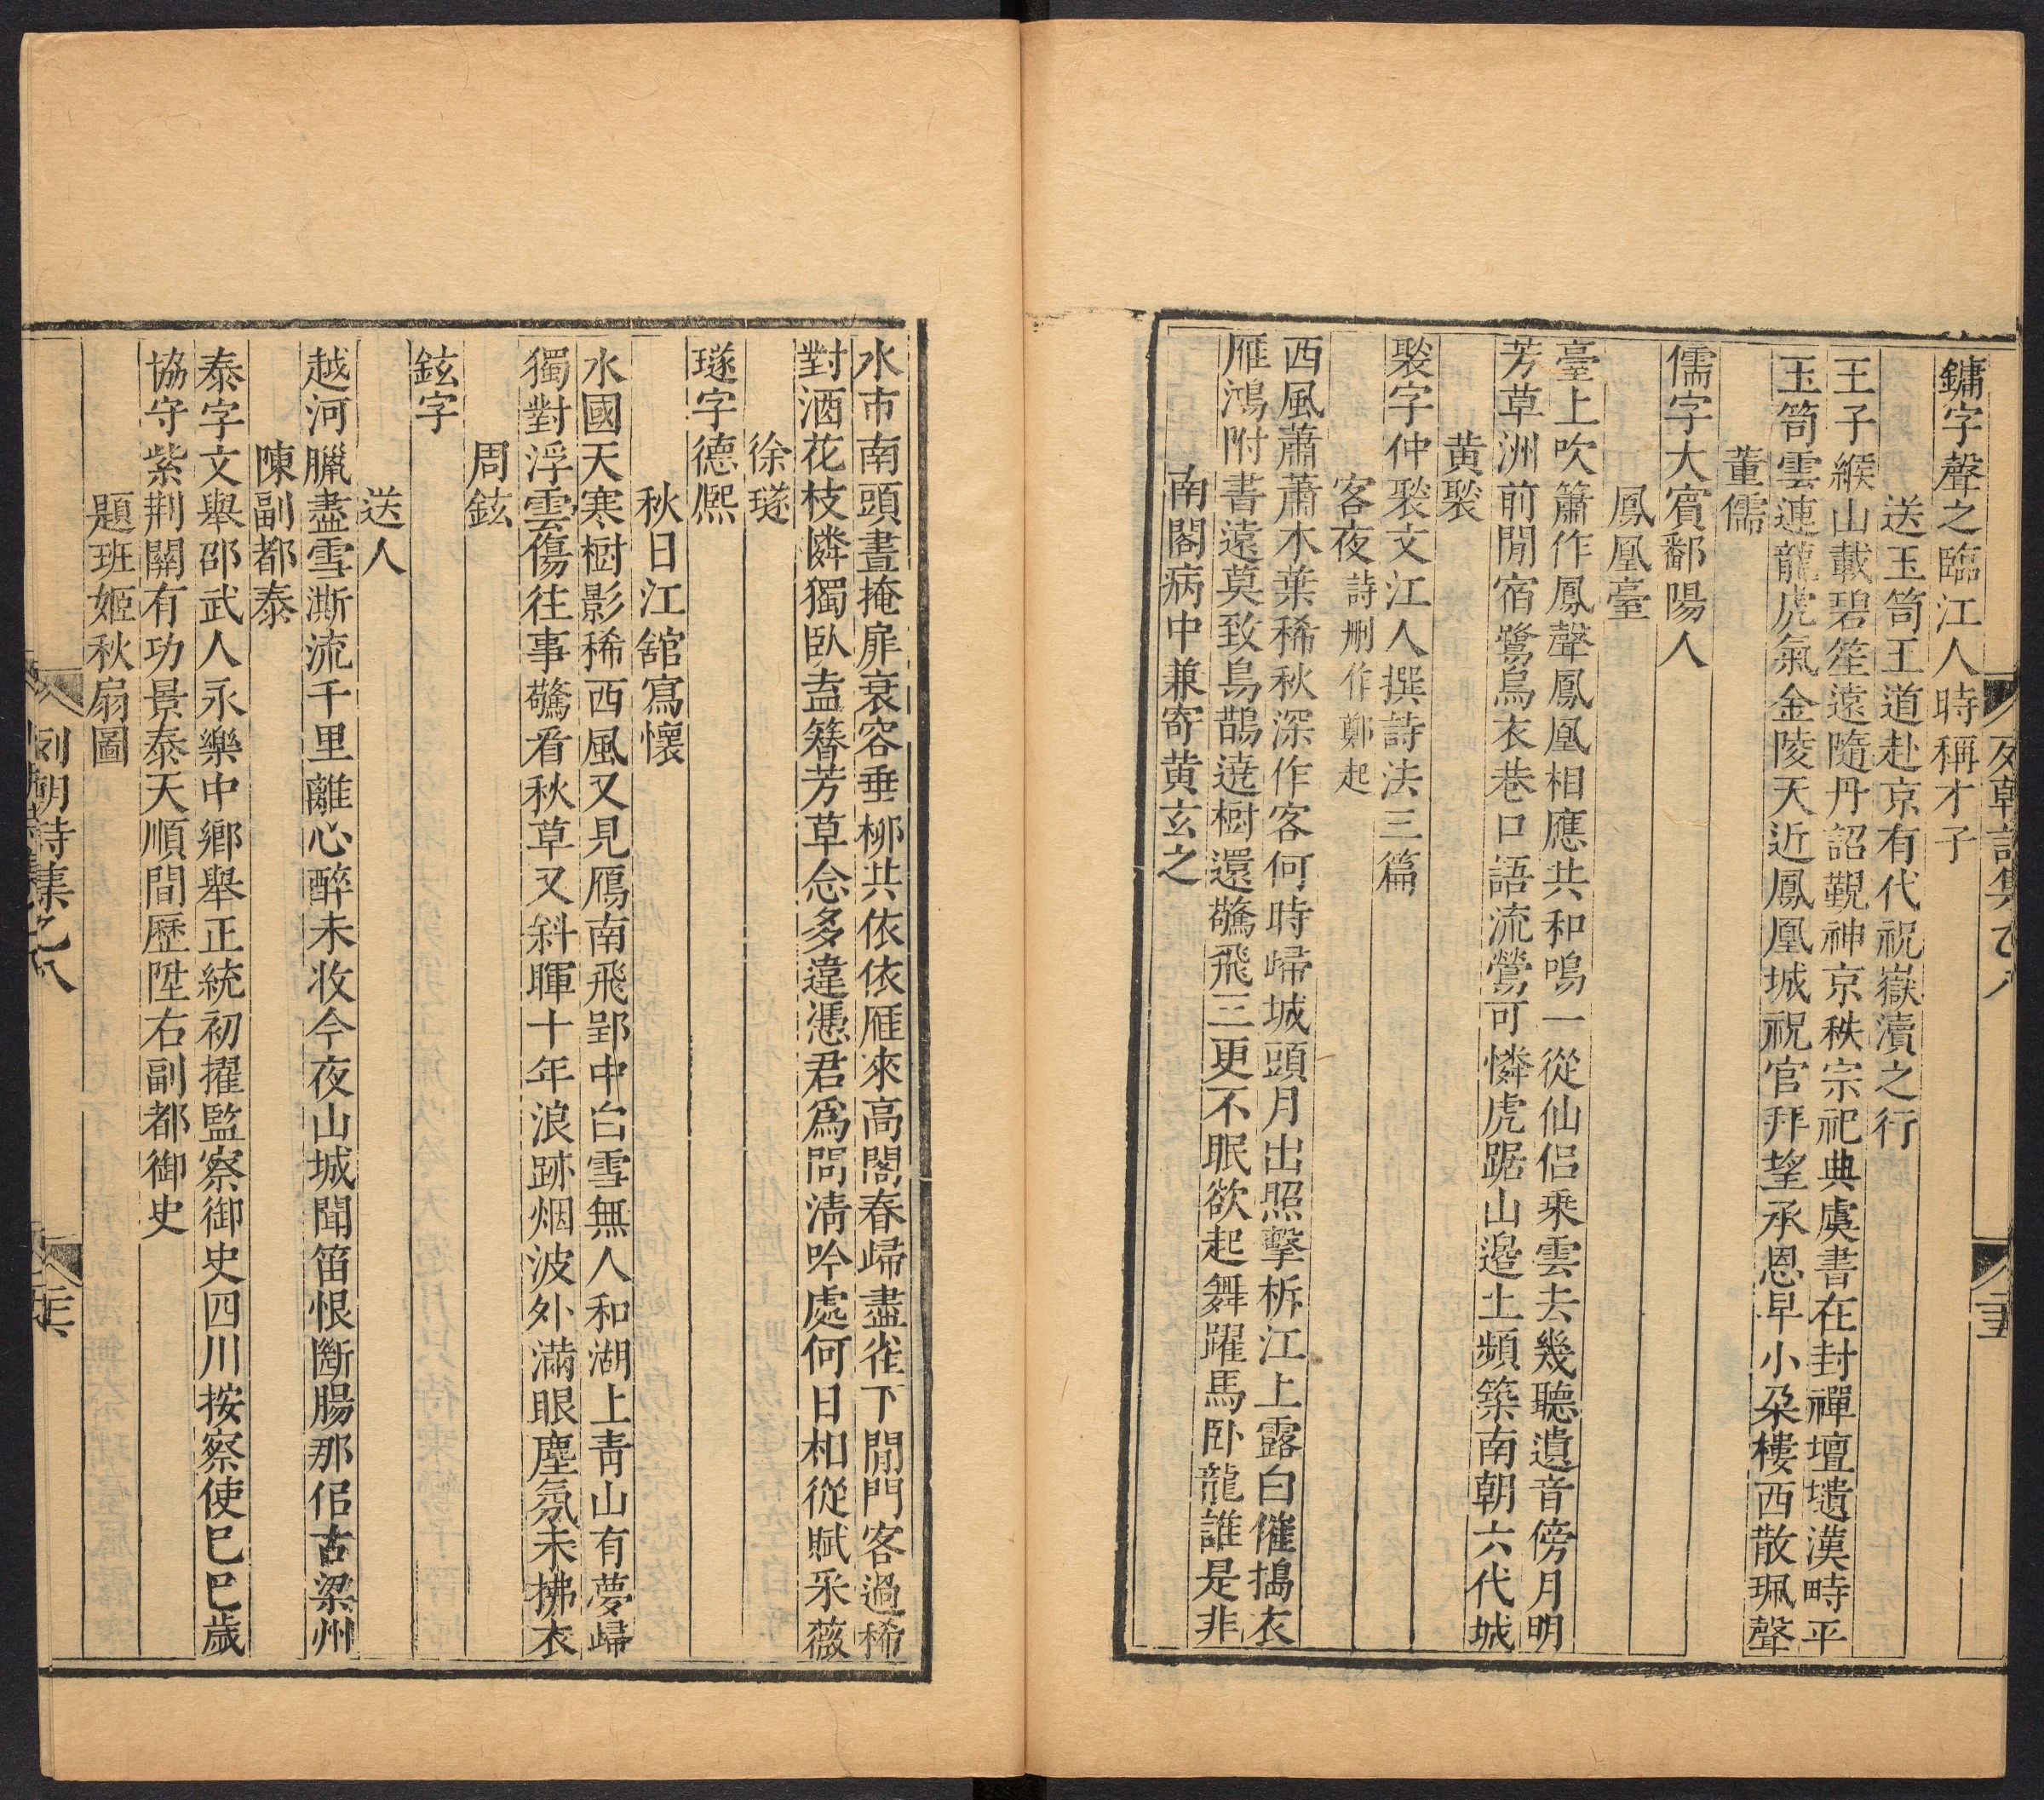 鏞字聲之臨江人時稱才子
送玉笥王道赴京有代祝嶽瀆之行
王子緱山載碧笙遠隨丹詔覲神京秩宗祀典虞書在封禪壇壝漢畤平
玉笥雲連龍虎氣金陵天近鳳凰城祝官拜望承恩早小朶樓西散珮聲
董儒
儒字大賓鄱陽人
鳳凰臺
臺上吹簫作鳳聲鳳凰相應共和鳴一從仙侶乘雲去幾聽遺音傍月明
芳草洲前閒宿鷺烏衣巷口語流鶯可憐虎踞山邉土頻築南朝六代城
黄褧
褧字仲褧文江人撰詩法三篇
客夜詩删作鄭起
西風蕭蕭木葉稀秋深作客何時歸城頭月出照擊柝江上露白催搗衣
雁鴻附書遠莫致烏鵲遶樹還驚飛三更不眠欲起舞躍馬卧龍誰是非
南閣病中兼寄黄玄之
水市南頭晝掩扉衰容垂柳共依依雁來高閣春歸盡雀下閒門客過稀
對酒花枝憐獨臥盍簪芳草念多違憑君爲問淸吟處何日相從賦采薇
徐璲
璲字德熈
秋日江舘寫懷
水國天寒樹影稀西風又見鴈南飛郢中白雪無人和湖上靑山有夢歸
獨對浮雲傷往事驚看秋草又斜暉十年浪跡烟波外滿眼塵氛未拂衣
周鉉
鉉字
送人
越河臘盡雪澌流千里離心醉未收今夜山城聞笛恨斷腸那侣古梁州
陳副都泰
泰字文舉邵武人永樂中鄉舉正統初擢監察御史四川按察使巳巳歲
協守紫荆關有功景泰天順間歷陞右副都御史
題班姬秋扇圖
列朝詩集乙八